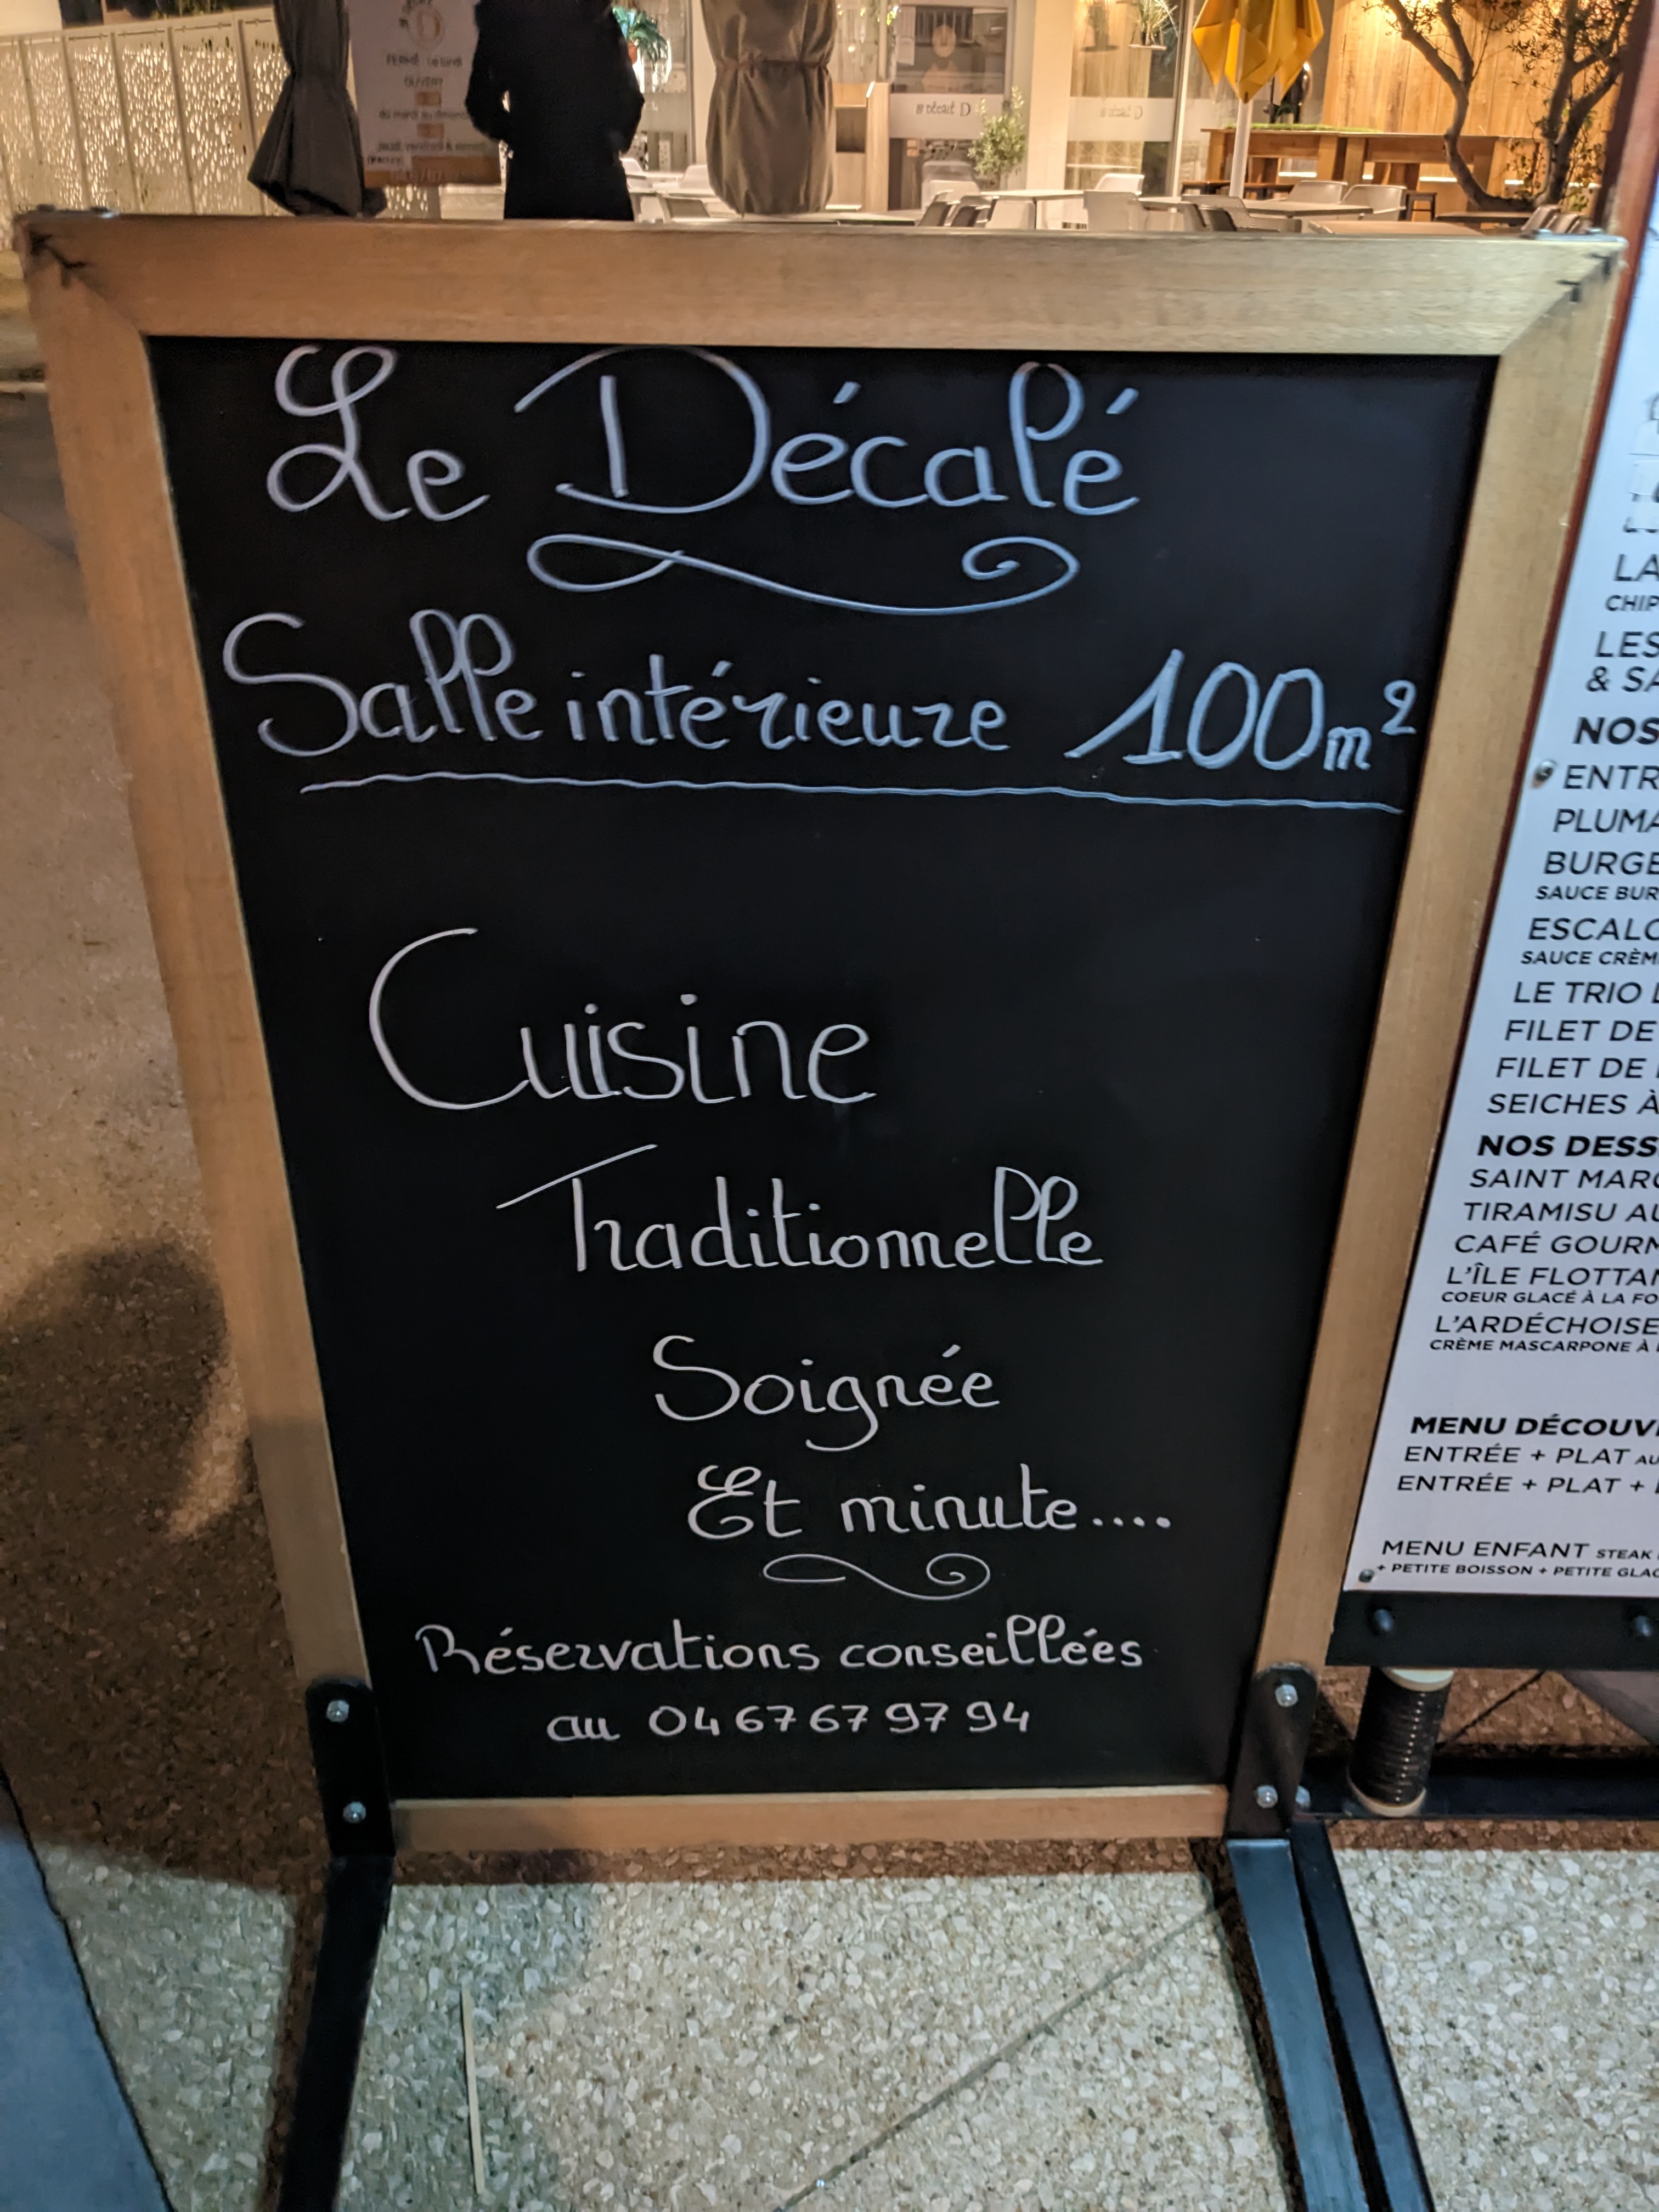 Le Décalé
Salle intérieure 100m²
Cuisine
Traditionnelle
Soignée
Et minute....
Réservations conseillées
au 04 67 67 97 94
FERMÉ Le lundi
OUVERT
du mardi au dimanche
LA
CHIP
LES
& SA
NOS
ENTR
PLUMA
BURGE
SAUCE BUR
ESCALO
SAUCE CRÈM
LE TRIO
FILET DE
FILET DE
SEICHES À
NOS DESS
SAINT MARC
TIRAMISU AU
CAFÉ GOURM
L'ÎLE FLOTTAN
COEUR GLACÉ À LA FO
L'ARDÉCHOISE
CRÈME MASCARPONE À
MENU DÉCOUV
ENTRÉE + PLAT AU
ENTRÉE + PLAT +
MENU ENFANT STEAK
+ PETITE BOISSON + PETITE GLAC